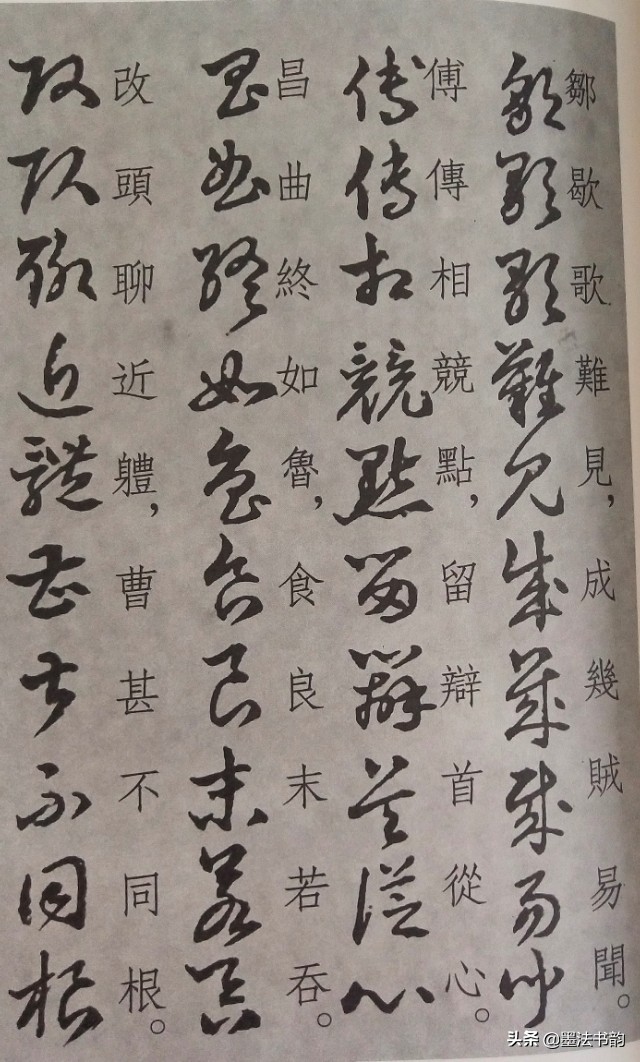 鄒歇歌難見，成幾賊易聞。
傅傳相競點，留辯首從心。
昌曲終如魯，食良末若吞。
改頭聊近軆，曹甚不同根。
头条 @墨法书韵